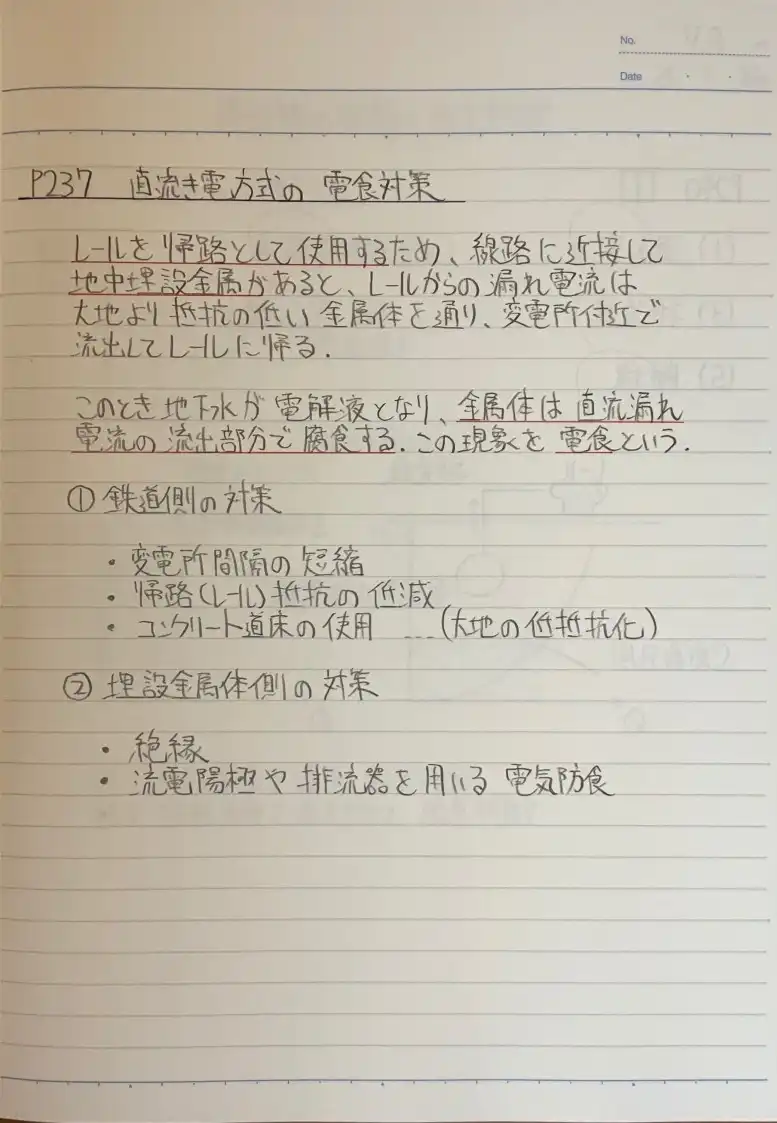 No.
Date
P237 直流き電方式の 電食対策
レールを帰路として使用するため、線路に近接して
地中埋設金属があると、レールからの漏れ電流は
大地より抵抗の低い金属体を通り、変電所付近で
流出してレールに帰る.
このとき地下水が電解液となり、金属体は直流漏れ
電流の流出部分で腐食する. この現象を電食という.
① 鉄道側の対策
・変電所間隔の短縮
・帰路(レール)抵抗の低減
・コンクリート道床の使用 …(大地の低抵抗化)
② 埋設金属体側の対策
・絶縁
・流電陽極や排流器を用いる電気防食